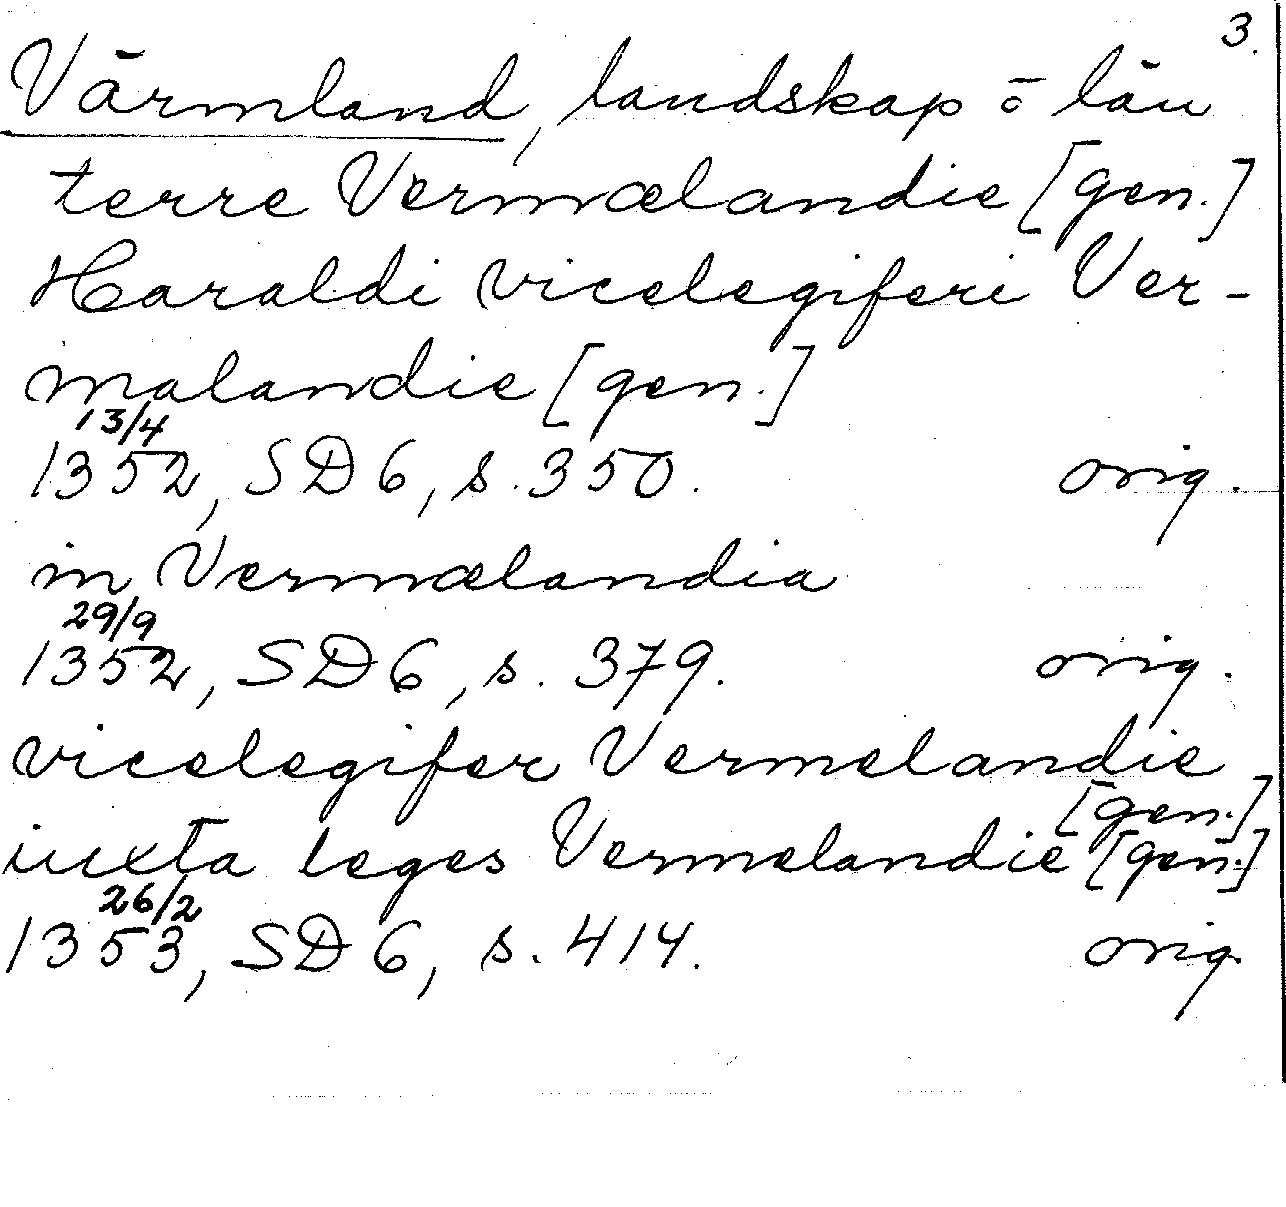 3.
Värmland, landskap ō län
terre Vermælandie [gen.]
Haraldi vicelegiferi Ver-
malandie [gen.]
13/4
1352, SD 6, s. 350. orig.
in Vermælandia
29/9
1352, SD 6, s. 379. orig.
vicelegifer Vermelandie
[gen.]
iuxta leges Vermelandie [gen.]
26/2
1353, SD 6, s. 414. orig.